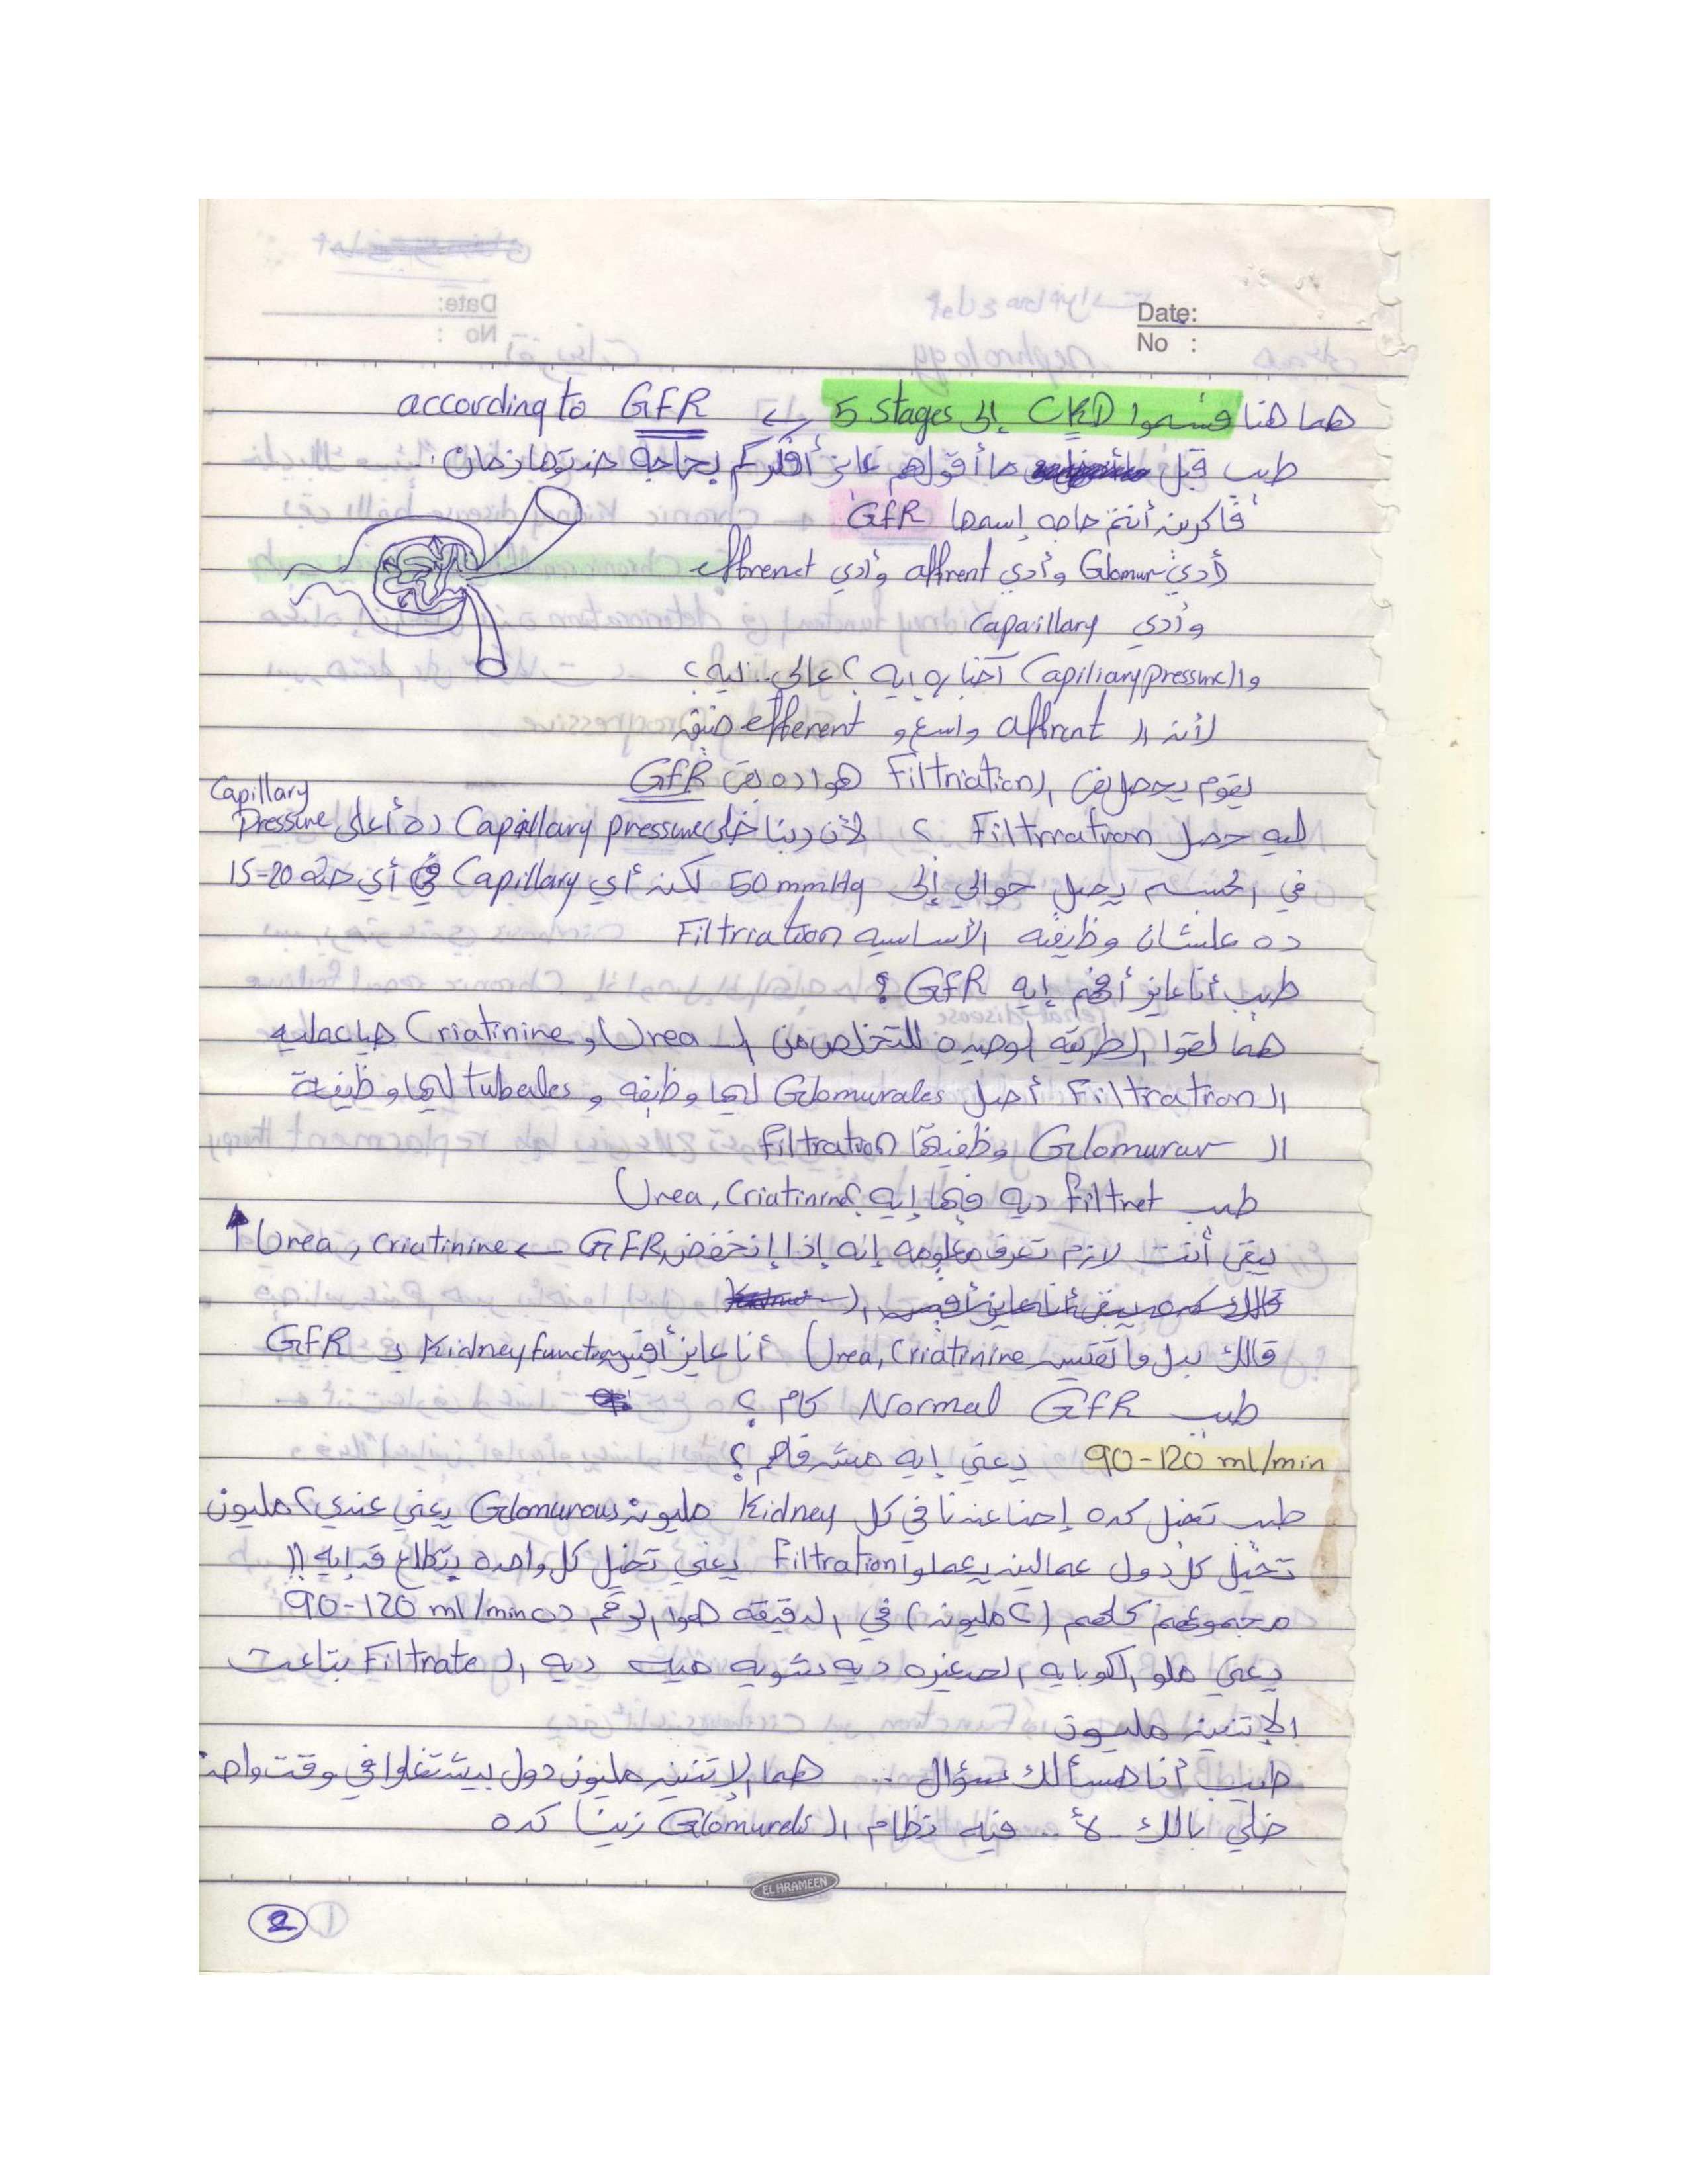 Date:
No :
هما هنا قسموا CKD إلى 5 stages ← according to GFR
طيب قبل ما أقولهم عايز أفكركم بحاجة خدتوها زمان :
فاكرين أنتم حاجه إسمها GFR
أدي Glomur وأدي affrent وأدي effrenet
وأدي Capaillary
والـ Capiliary pressure أخباره إيه ؟ عالى .. ليه ؟
لأن الـ affrent واسع و efferent ضيق
يقوم يحصل بقى الـ Filtriation هوا ده بقى GFR
ليه حصل Filtrration ؟ لأن ربنا خلى Capillary pressure ده أعلى Capillary Pressure
في الجسم يصل حوالي إلى 50 mmHg لكن أي Capillary في أي حته 15-20
ده علشان وظيفته الأساسيه Filtriation
طيب أنا عايز أفهم إيه GFR ؟
هما لقوا الطريقه الوحيده للتخلص من الـ Urea و Criatinine هيا عمليه
الـ Filtration أصل Glomurales ليها وظيفه و tubeles ليها وظيفة
الـ Glomurur وظفيتها filtration
طيب filtret ديه فيها إيه ؟ Urea, Criatinine
يبقى أنت لازم تعرف معلومه إنه إذا إنخفض GFR ← Urea, criatinine ↑
قالك بدل ما تقيس Urea, Criatinine أنا عايز أقيس Kidney function بـ GFR
طيب Normal GFR كام ؟
90-120 ml/min يعني إيه مش فاهم ؟
طيب تخيل كده إحنا عندنا في كل Kidney مليون Glomurous يعني عندي 2 مليون
تخيل كل دول عمالين يعملوا Filtration يعني تخيل كل واحده بتطلع قد إيه !!
مجموعهم كلهم (2 مليون) في الدقيقه هوا الرقم ده 90-120 ml/min
يعني ملو الكوبايه الصغيره ديه شويه ميه ديه الـ Filtrate بتاعت
الإتنين مليون
طيب أنا هسألك سؤال ... هما الإتنين مليون دول بيشتغلوا في وقت واحد
خلي بالك .. لأ .. فيه نظام الـ Glomurels زينا كده
EL HRAMEEN
2